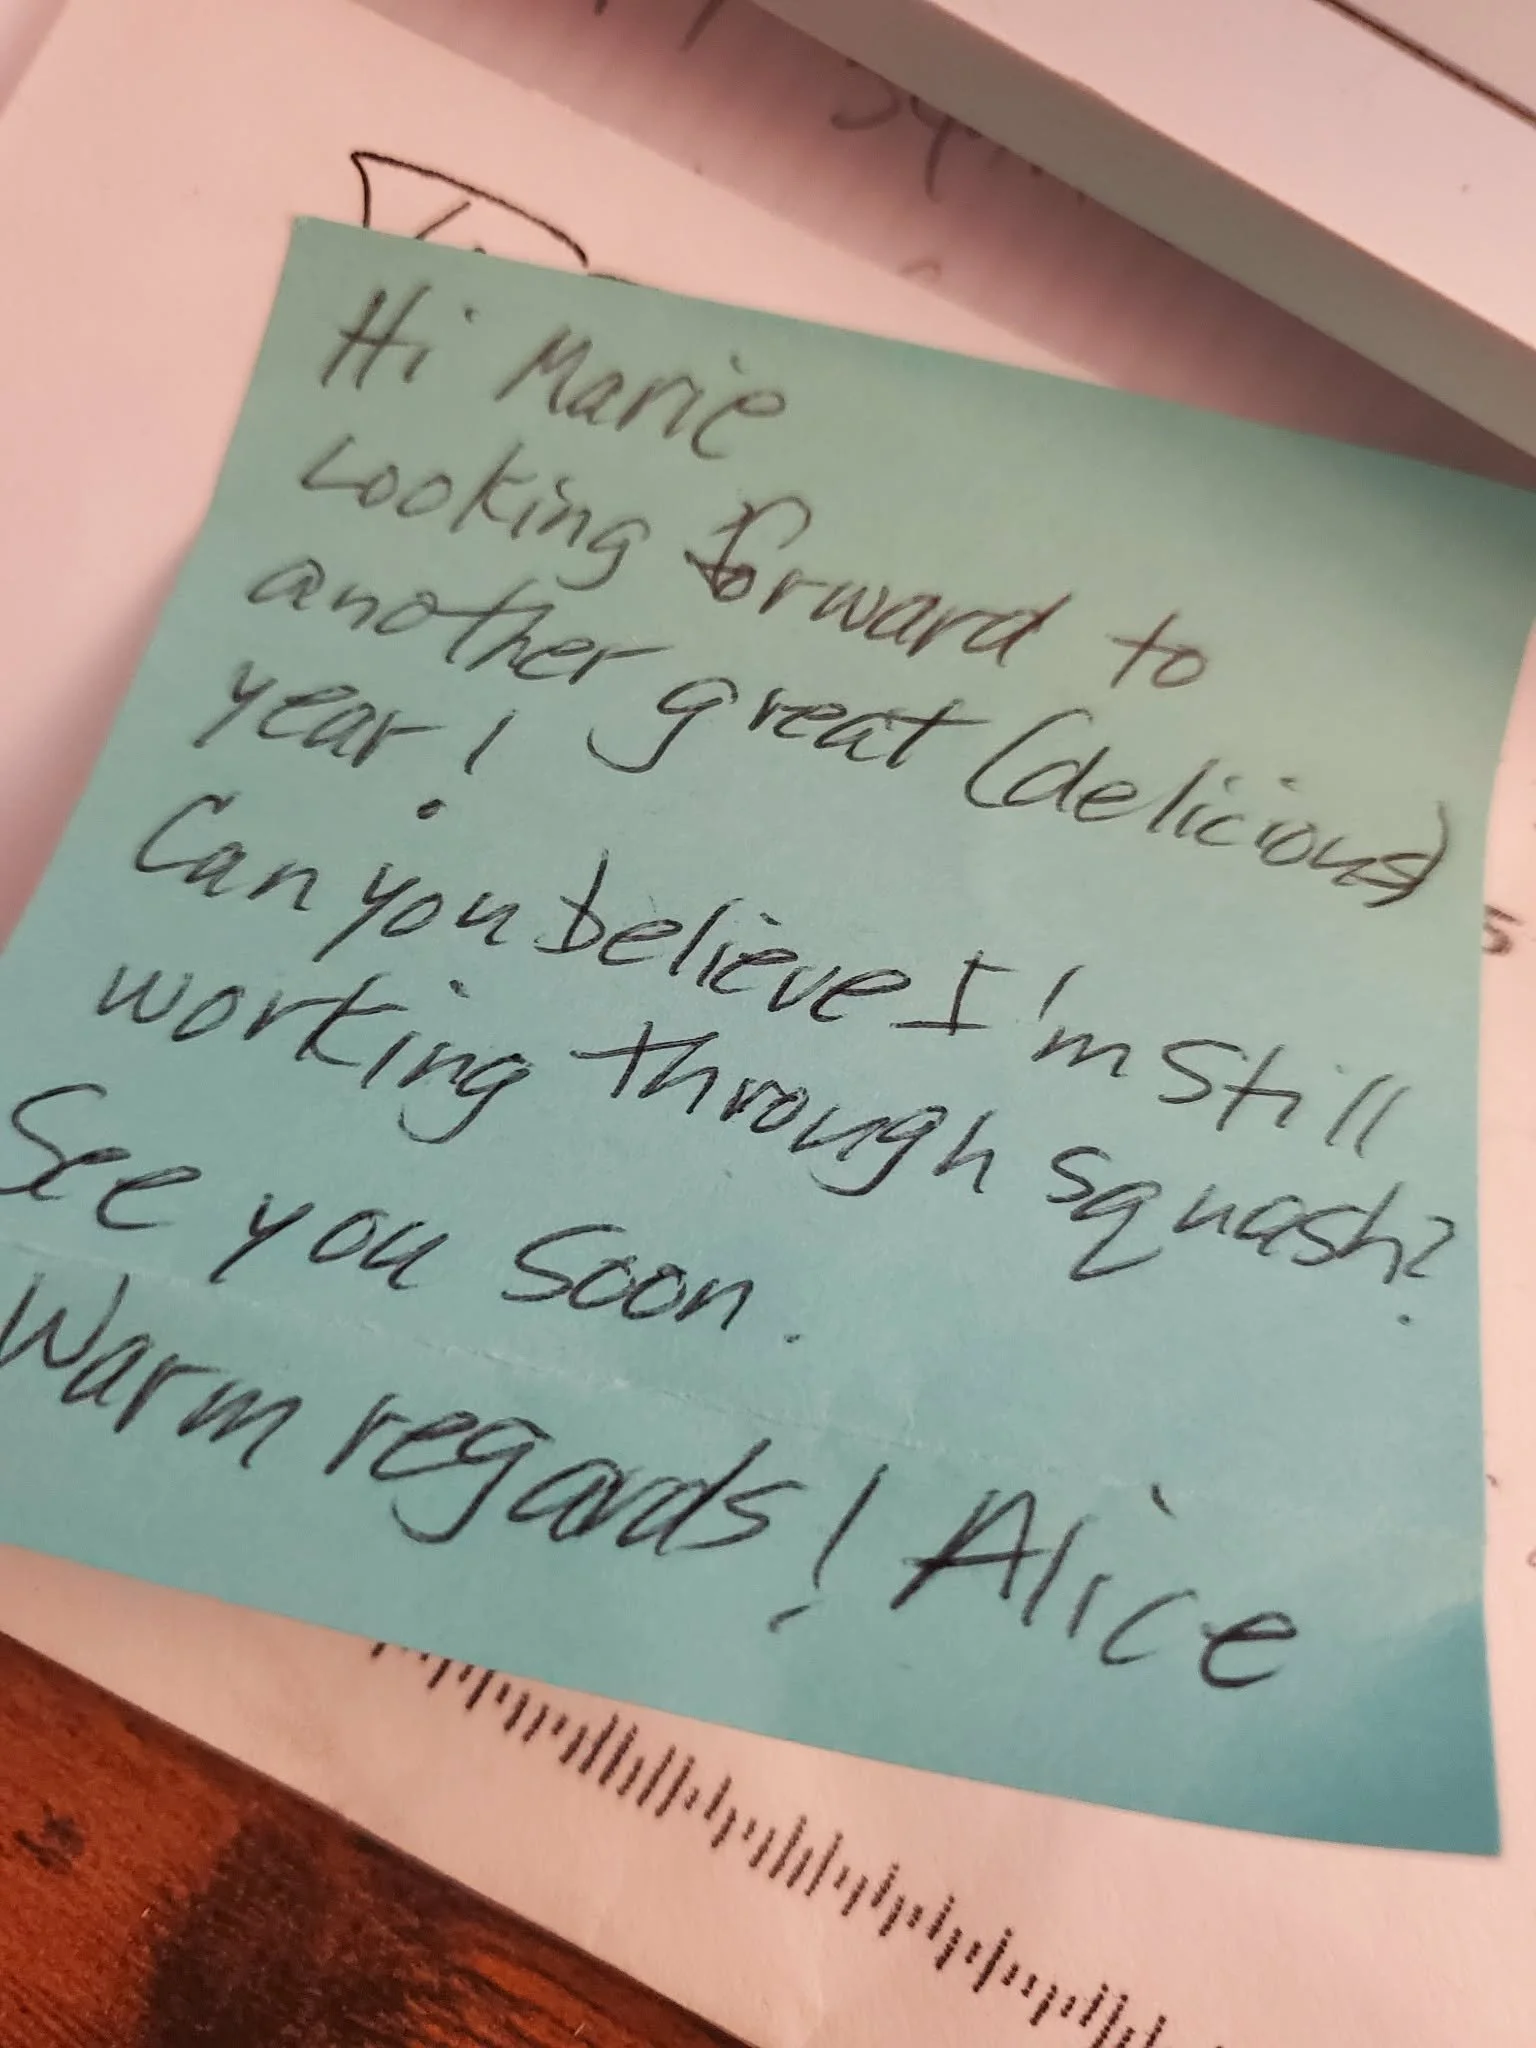 Hi Marie
Looking forward to
another great (delicious)
year!
Can you believe I'm still
working through squash?
See you soon.
Warm regards! Alice